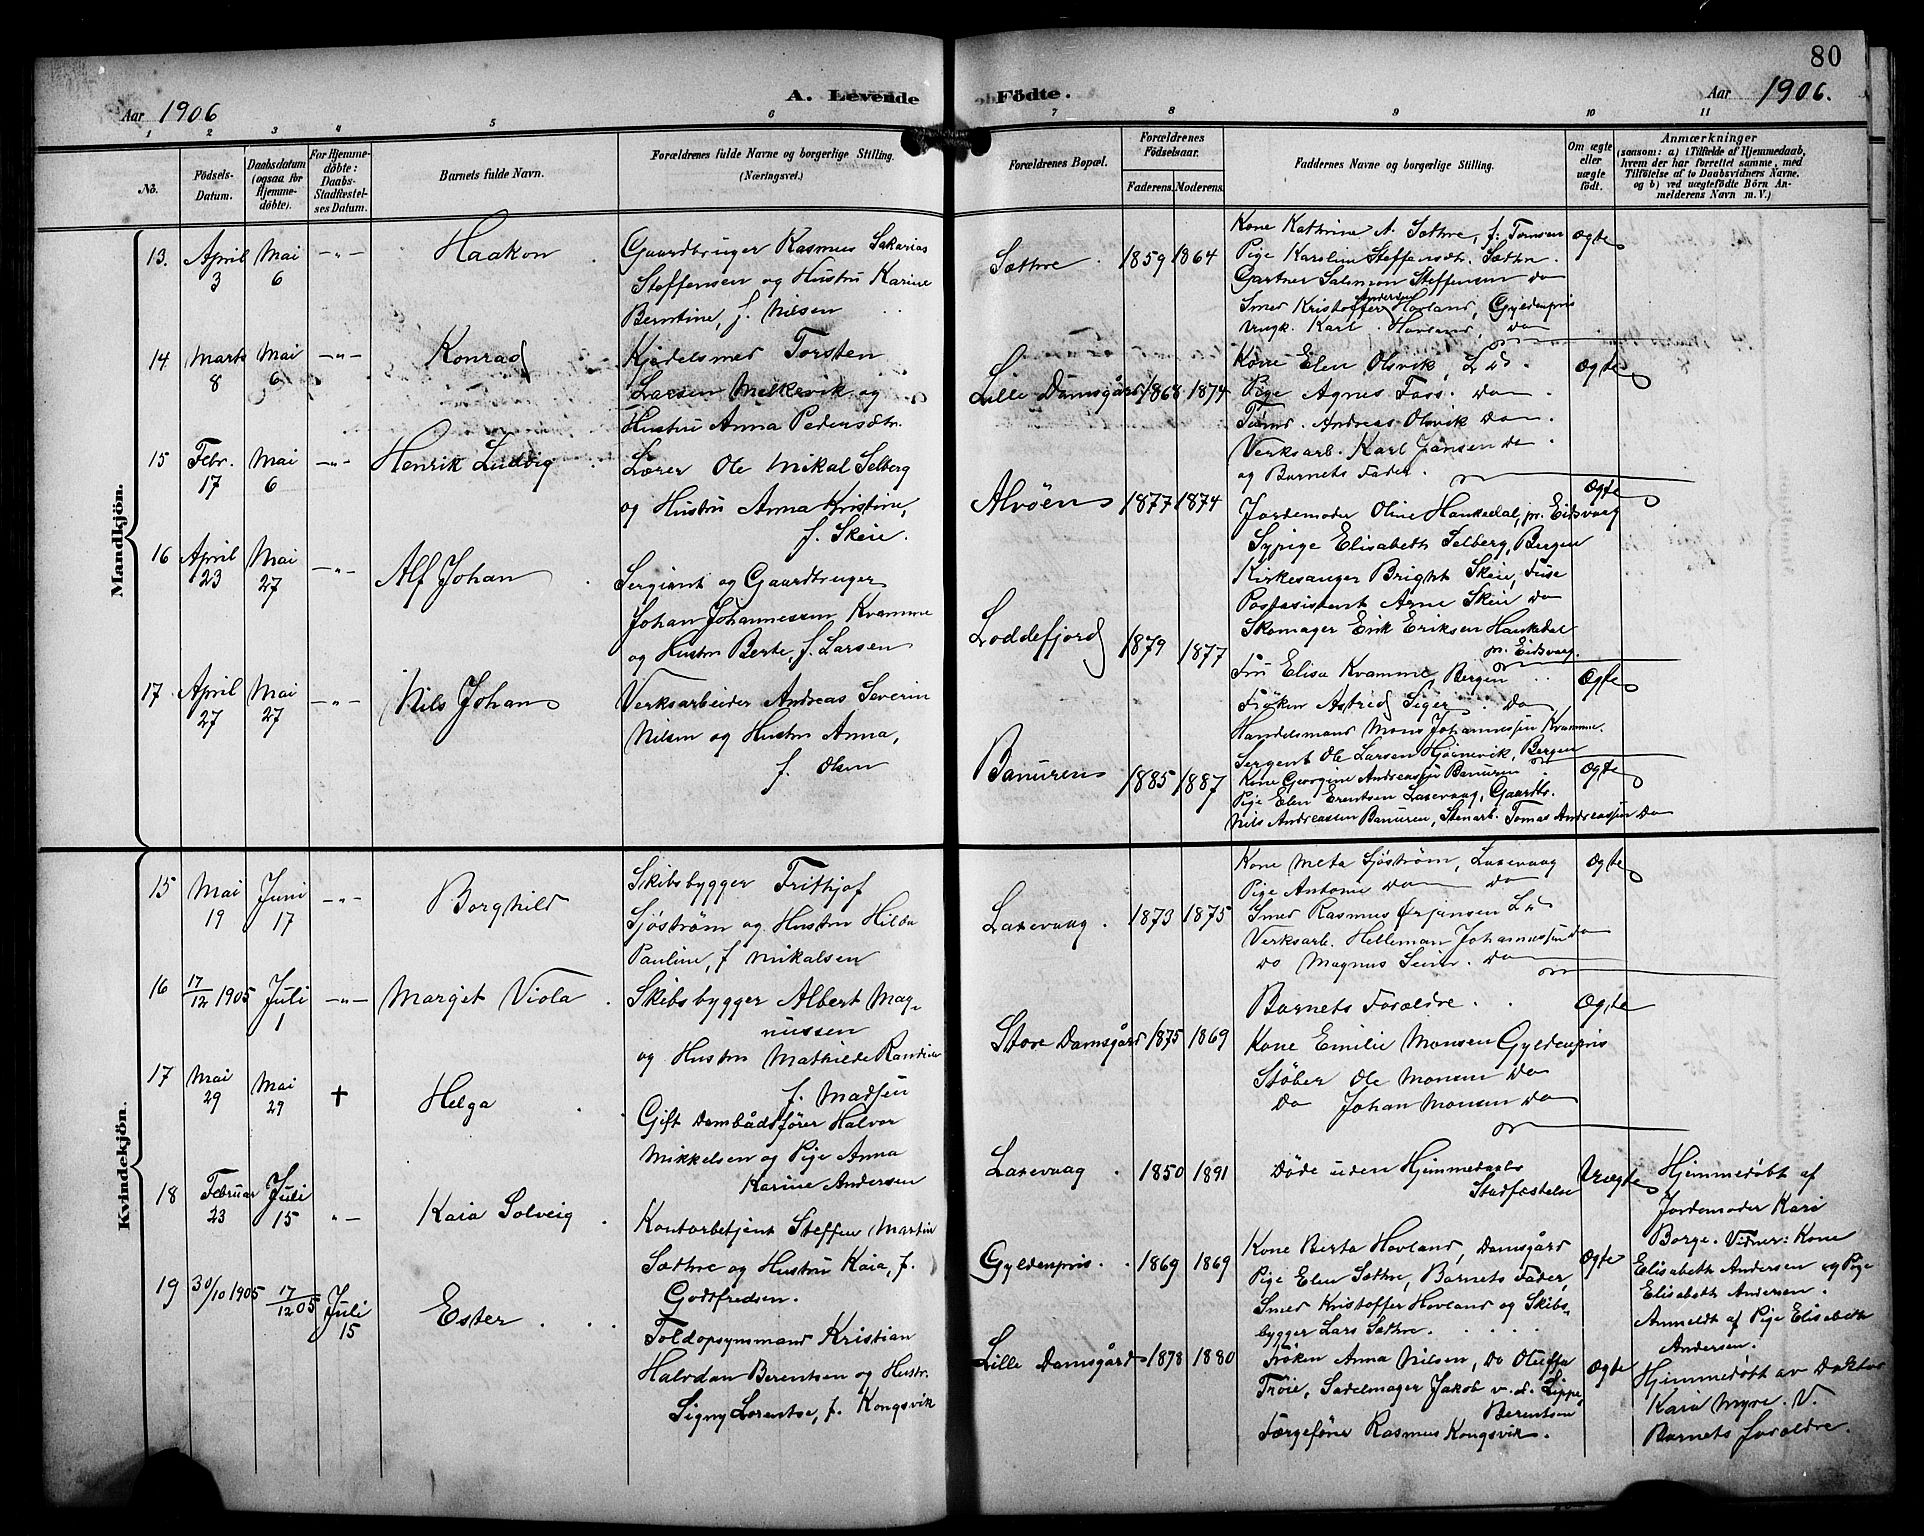 80
Aar 1906
A. Levende Födte.
Aar 1906.
1 2 3 4 5 6 7 8 9 10 11
No.
Födsels-Datum.
Daabsdatum (ogsaa for Hjemme-döbte).
For Hjemme-döbte: Daabs-Stadfæstel-ses Datum.
Barnets fulde Navn.
Forældrenes fulde Navne og borgerlige Stilling.
(Næringsvei.)
Forældrenes Bopæl.
Forældrenes Födselsaar.
Faderens. Moderens.
Faddernes Navne og borgerlige Stilling.
Om ægte eller uægte födt.
Anmærkninger
(saasom: a) i Tilfælde af Hjemmedaab,
hvem der har forrettet samme, med
Tilföielse af to Daabsvidners Navne.
og b) ved uægtefödte Börn An-
melderens Navn m. V.)
Mandkjön.
13. April 3 Mai 6 -"- Haakon
Gaardbruger Rasmus Sakarias
Steffensen og Hustru Karine
Berntine, f. Nilsen
Sæthre 1859 1864
Kone Kathrine A. Sæthre, f. Tomsen
Pige Karoline Steffensdtr. Sæthre
Gartner Salomon Steffensen do
Smed Kristoffer Andersen Hovland, Gyldenpris
Ungk. Karl Hovland, do
Ægte
14 Marts 8 Mai 6 -"- Konrad
Kjedelsmed Torsten
Larsen Melkevik og
Hustru Anna Pedersdtr.
Lille Damsgård 1868 1874
Kone Elen Olsvik, Ld.
Pige Agnes Foss. do
Tømd. Andreas Olsvik do
Verksarb. Karl Jansen do
og Barnets Fader.
Ægte
15 Febr. 17 Mai 6 -"- Henrik Ludvig
Lærer Ole Mikal Selberg
og Hustru Anna Kristine,
f. Skeie.
Alvøen 1877 1874
Jordemoder Oline Haukedal, pr. Eidsvaag
Sypige Elisabeth Selberg, Bergen
Kirkesanger Bright Skeie, Fuse
Postasistent Arne Skeie do
Skomager Erik Eriksen Haukedal
pr. Eidsvaag.
Ægte
16 April 23 Mai 27 -"- Alf Johan
Sergiant og Gaardbruger
Johan Johannessen Kvamme
og Hustru Berte, f. Larsen
Loddefjord 1879 1877
Fru Elisa Kvamme, Bergen
Frøken Astrid Seger do
Handelsmand Mons Johannessen Kvamme.
Sergent Ole Larsen Hjørnevik, Bergen
Ægte
17. April 27 Mai 27 -"- Nils Johan
Verksarbeider Andreas Severin
Nilsen og Hustru Anna,
f. Olsen
Banuren 1885 1887
Kone Georgine Andreassen Banuren
Pige Elen Erentsen Laxevaag, Gaardb.
Nils Andreassen Banuren, Stenarb. Tomas Andreassen do
Ægte
Kvindekjön.
15 Mai 19 Juni 17 -"- Borghild
Skibsbygger Frithjof
Sjöström og Hustru Hilda
Pauline, f. Mikalsen
Laxevaag. 1873 1875
Kone Meta Sjöström, Laxevaag
Pige Antonie do do
Smed Rasmus Ørjansen Ld
Verksarb. Helleman Johannessen do
do Magnus Seim. do
Ægte
16 17/12 1905 Juli 1 -"- Marget Viola
Skibsbygger Albert Mag-
nussen
og Hustru Mathilde Randine
f. Madsen
Store Damsgård 1875 1869
Barnets Forældre.
Kone Emilie Monsen Gyldenpris
Støber Ole Monsen do
do Johan Monsen do
Ægte
17 Mai 29 Mai 29 + Helga
Gift Dambådsfører Halvor
Mikkelsen og Pige Anna
Karine Andersen
Laxevaag 1850 1891
Døde uden Hjemmedaabs
Stadfæstelse
Uægte
Hjemmedøbt af
Jordemoder Kari
Borge. Vidner: Kone
Elisabeth Andersen og Pige
Elisabeth Andersen.
Anmeldt af Pige Elisabeth
Andersen.
18 Februar 23 Juli 15 "- Kaia Solveig
Kontorbetjent Steffen Martin
Sæthre og Hustru Kaia, f.
Godtfredsen.
Gyldenpris. 1869 1869
Kone Berta Hovland, Damsgård
Pige Elen Sæthre, Barnets Fader,
Smed Kristoffer Hovland og Skibs-
bygger Lars Sæthre.
Ægte
19 30/10 1905 17/12 05 Juli 15 Ester
Toldopsynsmand Kristian
Halvdan Berentsen og Hustr.
Signy Lorentse, f. Kongsvik
Lille Damsgård 1878 1880
Frøken Anna Nilsen, do Oluffa
Trøie, Sadelmager Jakob v. d. Lippe
Berentsen
Færgefører Rasmus Kongsvik.
Ægte
Hjemmedøbt av Doktor
Kaia Myre. V.
Barnets forældre.